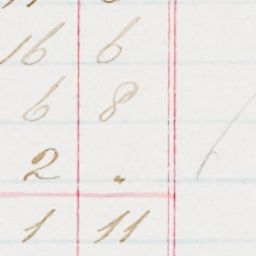 16 6
6 8
2 "
1 11